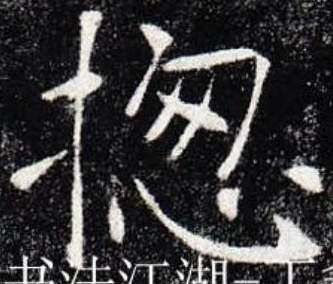 摠
书法江湖-